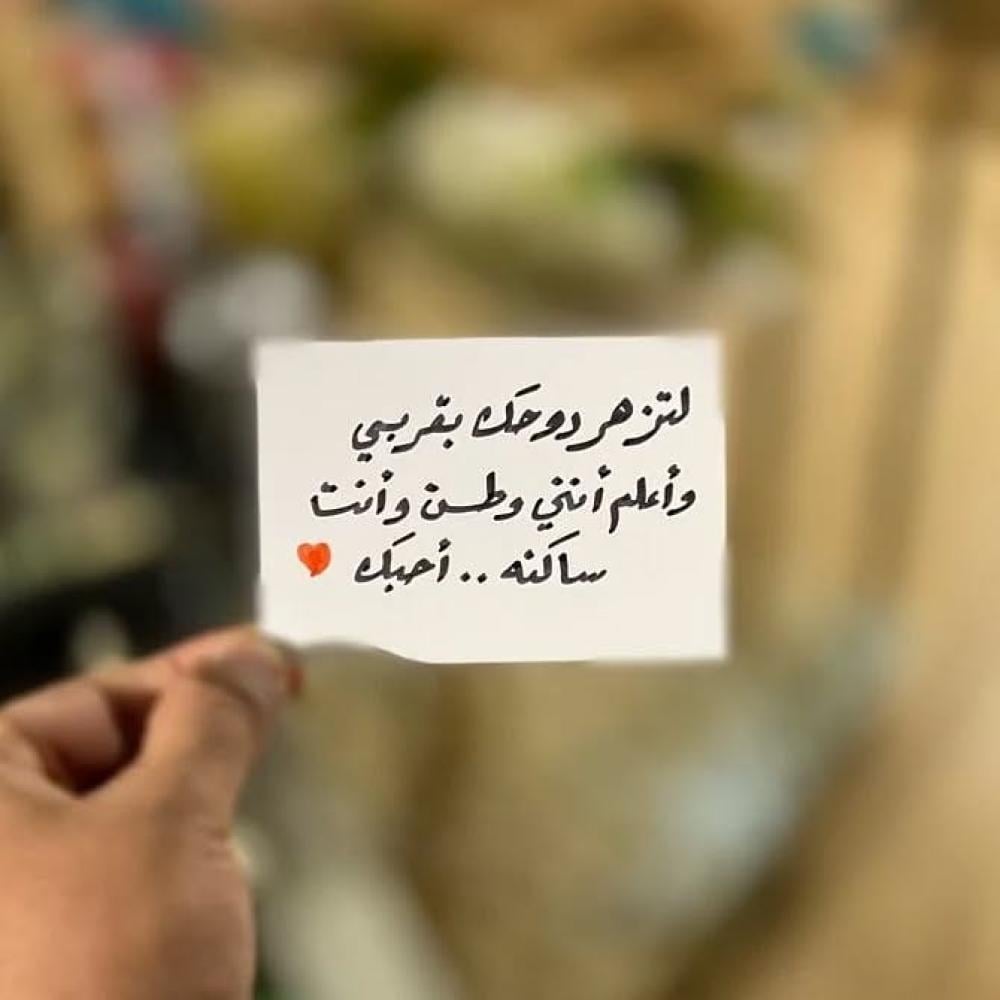 لتزهر روحك بقربي
وأعلم أنني وطن وأنت
ساكنه .. أحبك